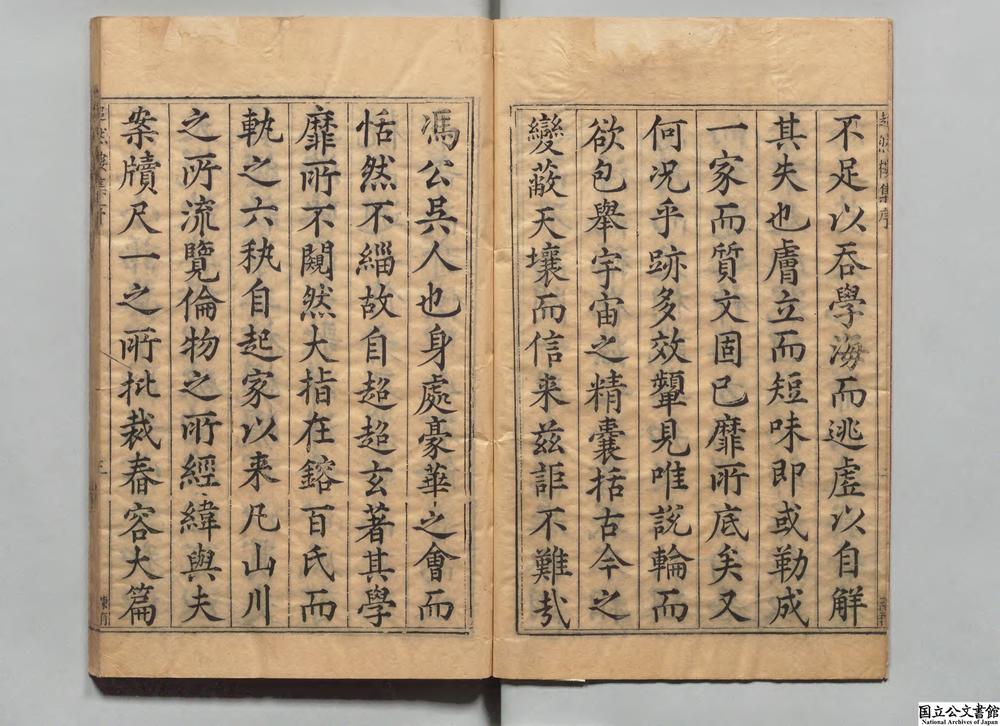 超然樓集序
不足以吞學海而逃虛以自解
其失也膚立而短味即或勒成
一家而質文固已靡所底矣又
何況乎跡多效顰見唯說輪而
欲包舉宇宙之精囊括古今之
變蔽天壤而信来兹詎不難㦲
馮公吳人也身處豪華之會而
恬然不緇故自超超玄著其學
靡所不闚然大指在鎔百氏而
軌之六秇自起家以来凡山川
之所流覽倫物之所經緯與夫
案牘尺一之所批裁舂容大篇
三
国立公文書館
National Archives of Japan